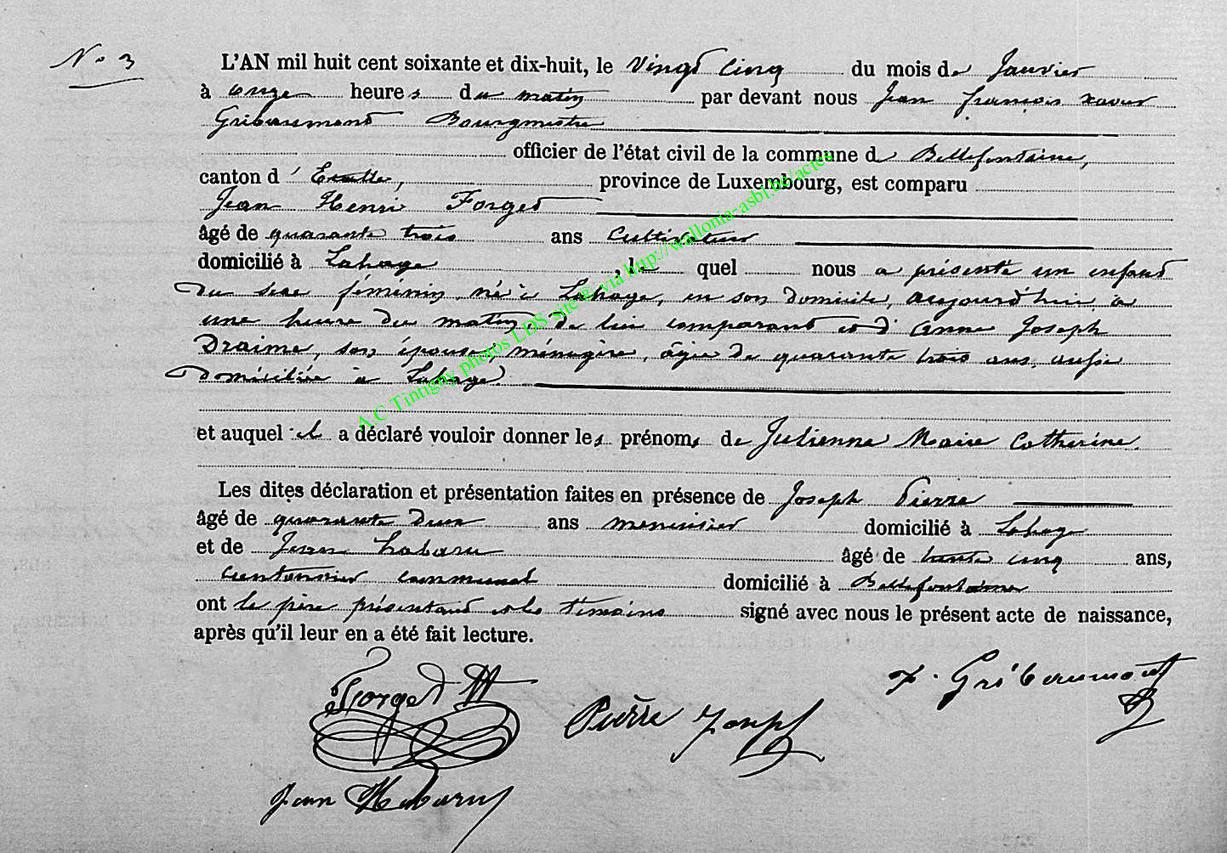 N° 3
L'AN mil huit cent soixante et dix-huit, le vingt cinq du mois de Janvier
à onze heures du matin par devant nous Jean françois xavier
Gribaumont Bourgmestre
officier de l'état civil de la commune d Bellefontaine,
canton d' Etalle, province de Luxembourg, est comparu
Jean Henri Forget
âgé de quarante trois ans Cultivateur
domicilié à Lahage, le quel nous a présenté un enfant
du sexe féminin, né à Lahage, en son domicile, aujourd'hui à
une heure du matin, de lui comparant et d'Anne Joseph
Draime, son épouse, ménagère, âgée de quarante trois ans, aussi
domiciliée à Lahage.
et auquel il a déclaré vouloir donner les prénoms de Julienne Marie Catherine.
Les dites déclaration et présentation faites en présence de Joseph Pierre
âgé de quarante deux ans menuisier domicilié à Lahage
et de Jean habaru âgé de trente cinq ans,
Cantonnier communal domicilié à Bellefontaine
ont le père présentant et les témoins signé avec nous le présent acte de naissance,
après qu'il leur en a été fait lecture.
Forget H
Pierre Joseph
Gribaumont
Jean Habaru
A.C Tintigny photos LDS site via http://wallonia-asbl.be/actes